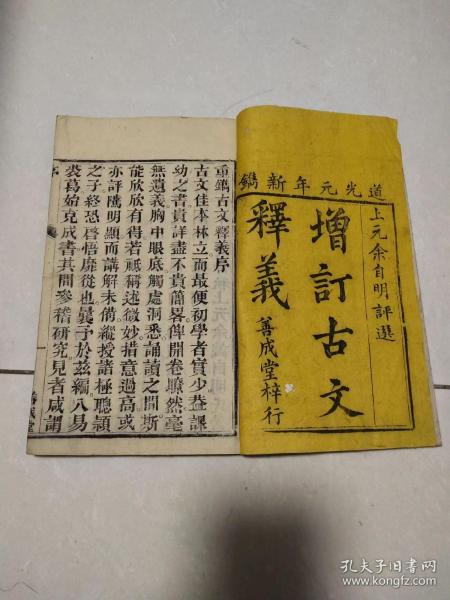 道光元年新鐫
上元余自明評選
增訂古文
釋義
善成堂梓行
重鐫古文釋義序
古文佳本林立而最便初學者實少葢課
幼之書貴詳盡不貴簡畧俾開卷瞭然毫
無遺義胸中眼底觸處洞悉誦讀之間斯
能欣欣有得若祗稱述微妙措意過高或
亦評隲明顯而講解未備縱授諸極聰穎
之子終恐啓悟靡從也曩予於兹編八易
裘葛始克成書其間參稽研究見者咸謂
善成堂
孔夫子旧书网
www.kongfz.com